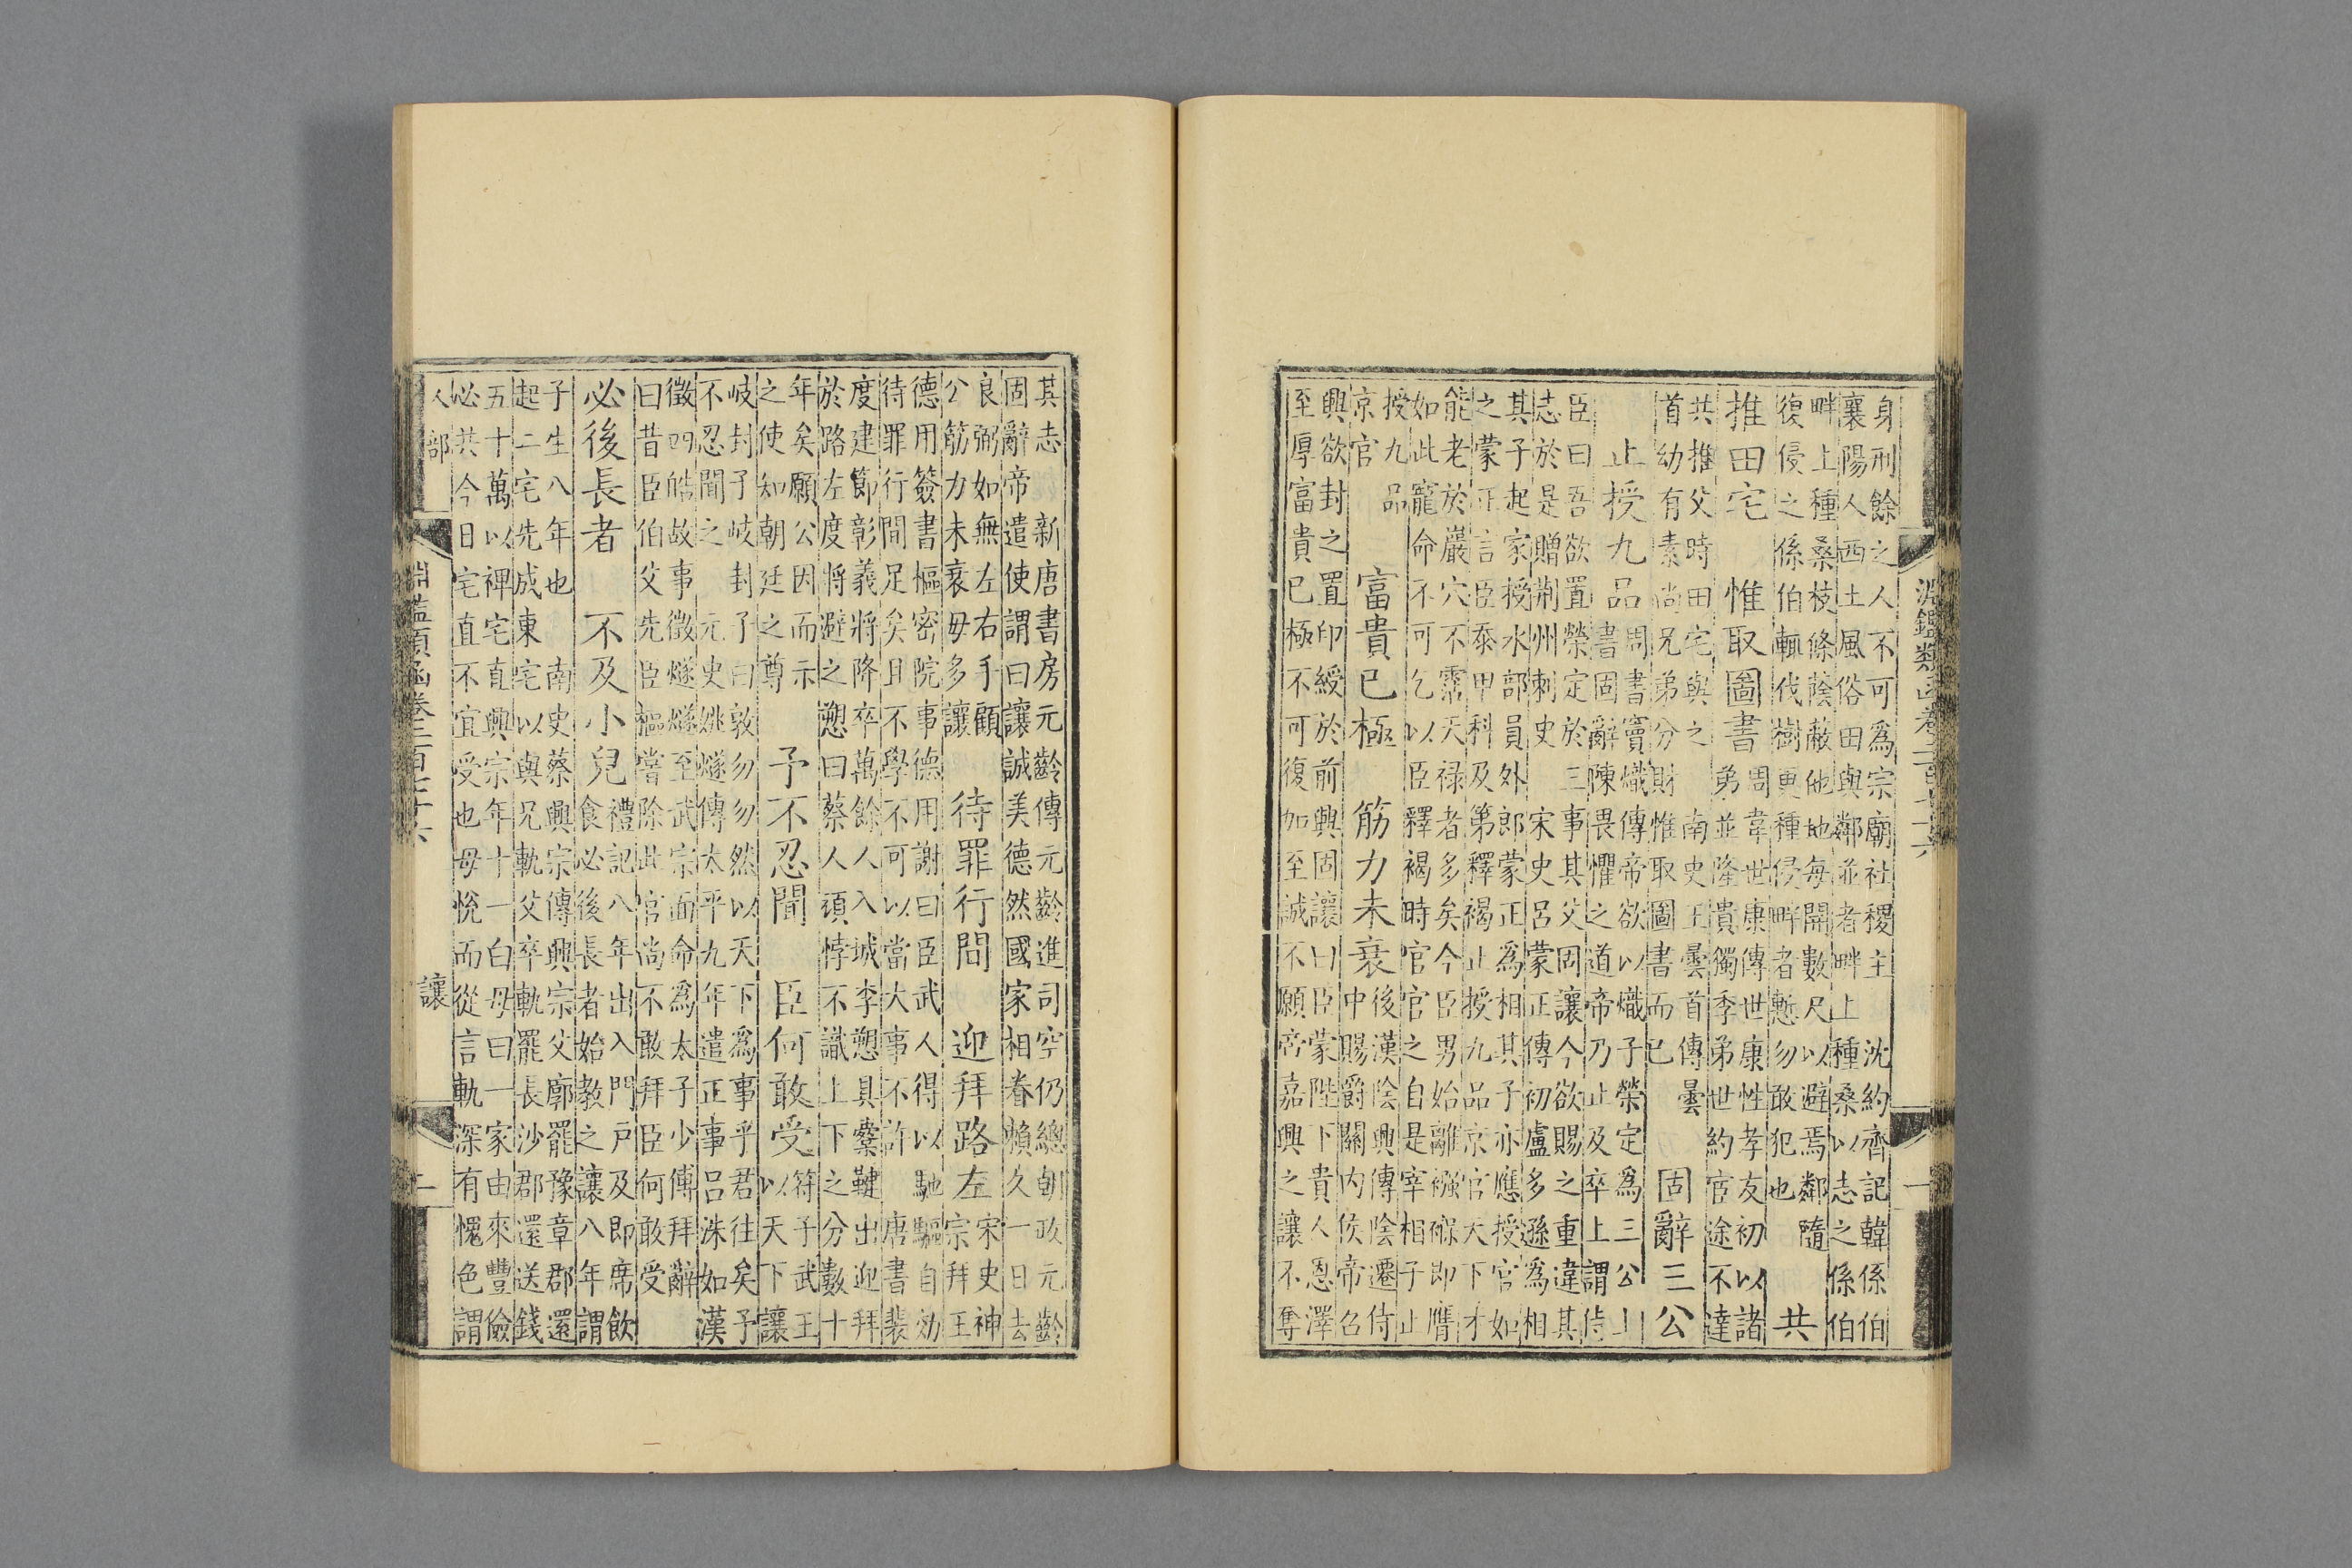 淵鑑類函卷二百七十六　一
身刑餘之人不可為宗廟社稷主　沈約齊記韓係伯
襄陽人西土風俗田與鄰並者畔上種桑以志之係伯
畔上種桑枝條蔭蔽他地每開數尺以避焉鄰隨
復侵之係伯輒伐樹更種侵畔者慙勿敢犯也
共
推田宅　惟取圖書
周韋世康傳世康性孝友初以諸
弟並隆貴獨季弟世約宦途不達
共推父時田宅與之　南史王曇首傳曇
首幼有素尚兄弟分財惟取圖書而已
固辭三公
止授九品
周書竇熾傳帝欲以熾子榮定為三公上
書固辭陳畏懼之道帝乃止及卒上謂侍
臣曰吾欲置榮定於三事其父固讓今欲賜之重違其
志於是贈荊州刺史　宋史呂蒙正傳初盧多遜為相
其子起家授水部員外郎蒙正為相其子亦應授官如
之蒙正言臣忝甲科及第釋褐止授九品京官天下才
能老於巖穴不霑天祿者多矣今臣男始離襁褓即膺
如此寵命不可乞以臣釋褐時官官之自是宰相子止
授九品
京官
富貴已極　筋力未衰
後漢陰興傳陰遷侍
中賜爵關內侯帝召
興欲封之置印綬於前興固讓曰臣蒙陛下貴人恩澤
至厚富貴已極不可復加至誠不願帝嘉興之讓不奪
其志　新唐書房元齡傳元齡進司空仍總朝政元齡
固辭帝遣使謂曰讓誠美德然國家相眷賴久一日去
良弼如無左右手顧
公筋力未衰毋多讓
待罪行間　迎拜路左
宋史神
宗拜王
德用簽書樞密院事德用謝曰臣武人得以馳驅自効
待罪行間足矣且不學不可以當大事不許　唐書裴
度建節彰義將降卒萬餘人入城李愬具櫜鞬出迎拜
於路左度將避之愬曰蔡人頑悖不識上下之分數十
年矣願公因而示
之使知朝廷之尊
予不忍聞　臣何敢受
符子武王
以天下讓
岐封子岐封子曰敦勿勿然以天下為事乎君往矣予
不忍聞之　元史姚燧傳太平九年遣正事呂洙如漢
徵四皓故事徵燧燧至武宗面命為太子少傅拜辭
曰昔臣伯父先臣樞嘗除此官尚不敢拜臣何敢受
必後長者　不及小兒
禮記八年出入門戶及即席飲
食必後長者始教之讓八年謂
子生八年也　南史蔡興宗傳興宗父廓罷豫章郡還
起二宅先成東宅以與兄軌父卒軌罷長沙郡還送錢
五十萬以裨宅直興宗年十一白母曰一家由來豐儉
必共今日宅直不宜受也母悅而從言軌深有愧色謂
人部　淵鑑類函卷二百七十六　讓　二